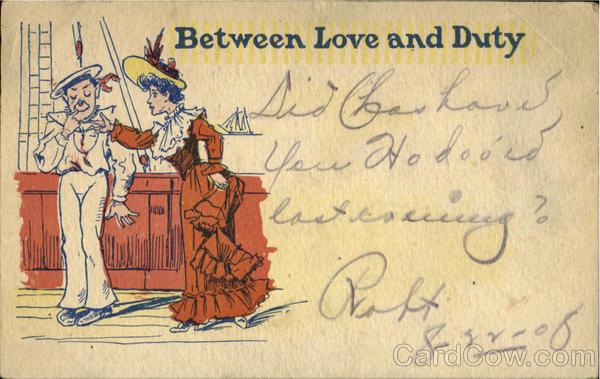 Between Love and Duty
Did Chas have
You Hodooed
last evening?
Robt
8-22-08
CardCow.com